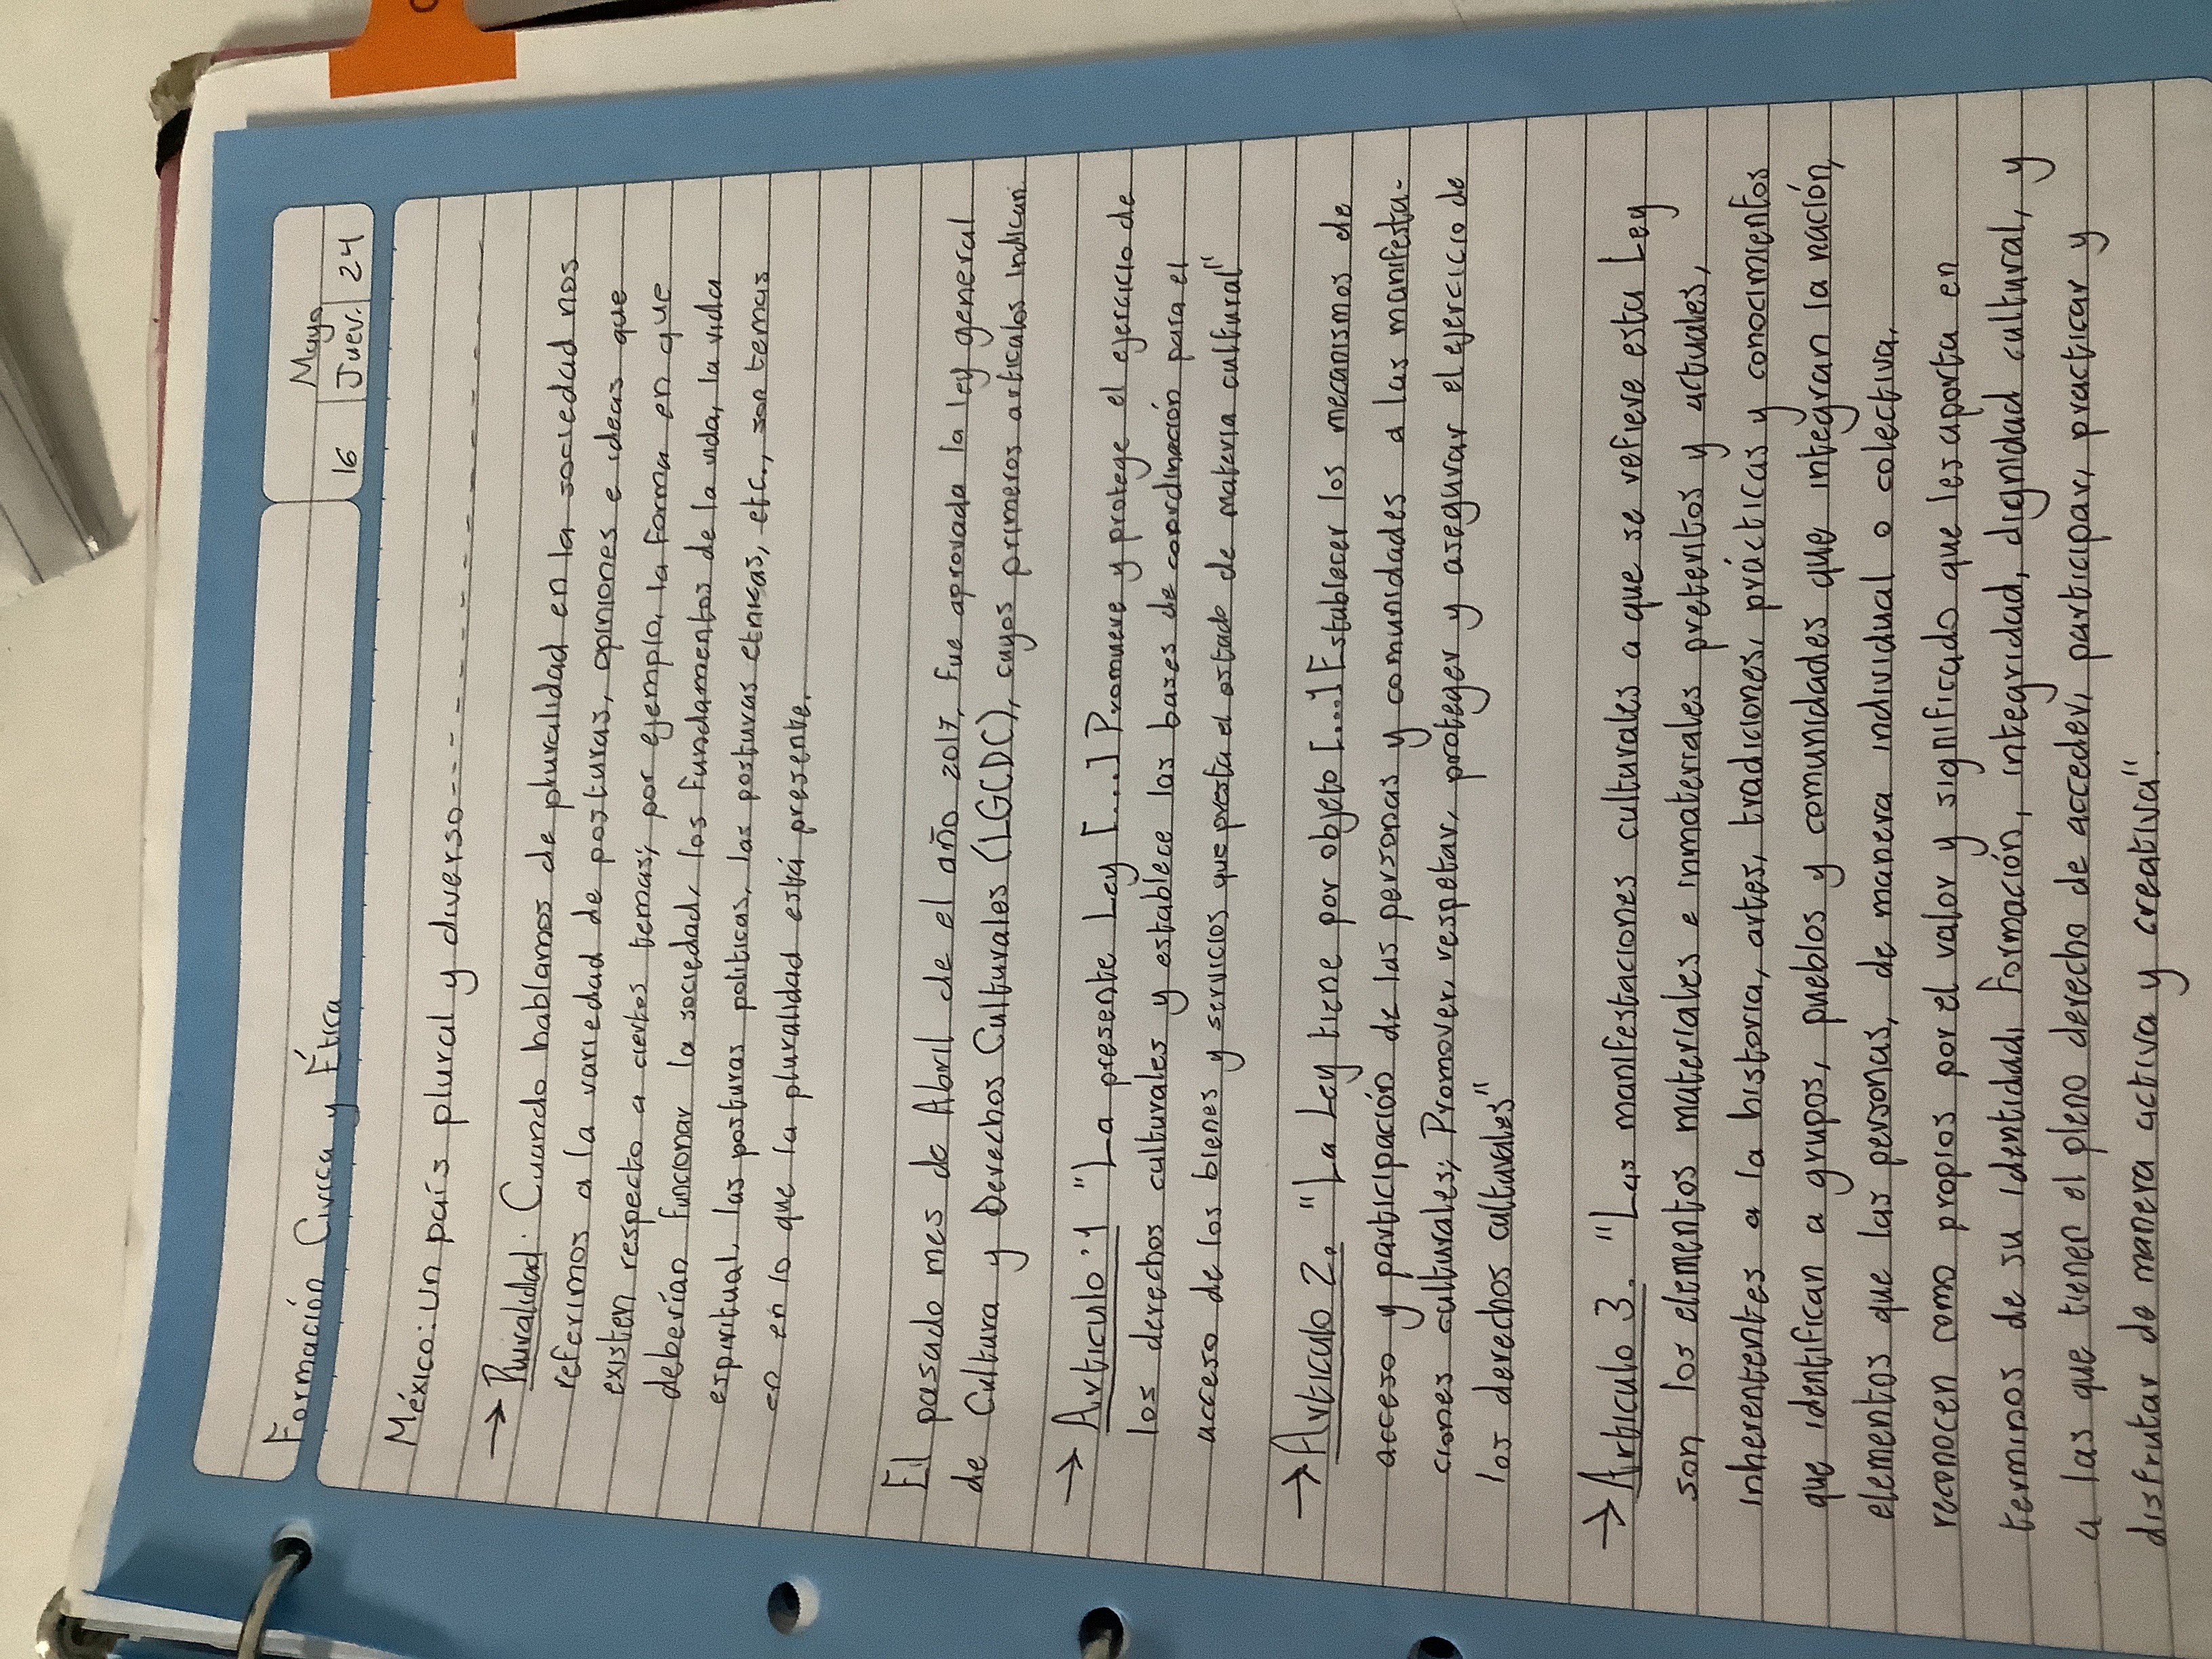 Mayo
16 | Juev. | 24
Formación Cívica y Ética
México: un país plural y diverso
→ Pluralidad: Cuando hablamos de pluralidad en la sociedad nos
referimos a la variedad de posturas, opiniones e ideas que
existen respecto a ciertos temas; por ejemplo, la forma en que
deberían funcionar la sociedad, los fundamentos de la vida, la vida
espiritual, las posturas politicas, las posturas etnicas, etc., son temas
en en lo que la pluralidad está presente.
El pasado mes de Abril de el año 2017, fue aprovada la ley general
de Cultura y Derechos Culturales (LGCDC), cuyos primeros articulos indican.
→ Articulo '1 "La presente Ley [...] Promueve y protege el ejercicio de
los derechos culturales y establece las bases de coordinación para el
acceso de los bienes y servicios que presta el estado de materia cultural"
→ Articulo 2. "La Ley tiene por objeto [...] Establecer los mecanismos de
acceso y participación de las personas y comunidades a las manifesta-
ciones culturales; Promover, respetar, proteger y asegurar el ejercicio de
los derechos culturales"
→ Articulo 3. "Las manifestaciones culturales a que se refiere esta Ley
son los elementos materiales e inmateriales preteritos y actuales,
inherentes a la historia, artes, tradiciones, prácticas y conocimientos
que identifican a grupos, pueblos y comunidades que integran la nación,
elementos que las personas, de manera individual o colectiva,
reconocen como propios por el valor y significado que les aporta en
terminos de su identidad, formación, integridad, dignidad cultural, y
a las que tienen el pleno derecho de acceder, participar, practicar y
disfrutar de manera activa y creativa"